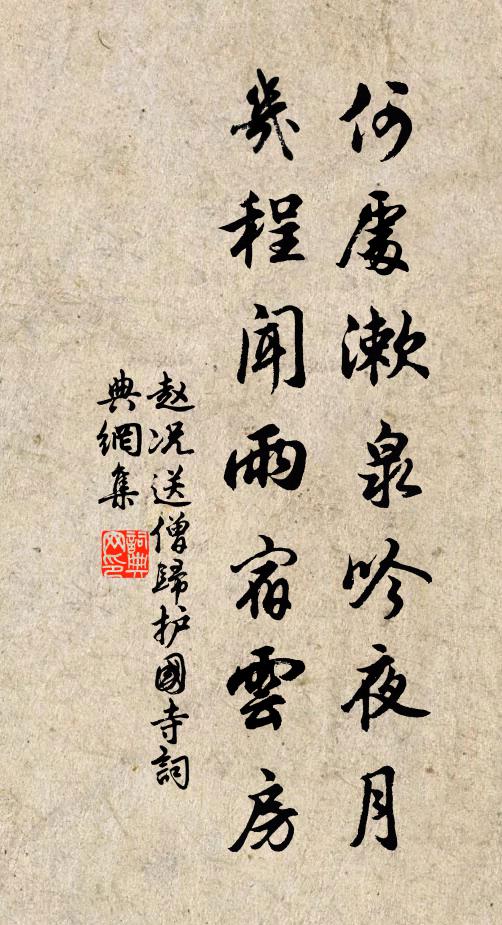 何處漱泉吟夜月
幾程聞雨宿雲房
赵况送僧歸护國寺詞
典網集
詞典
网印